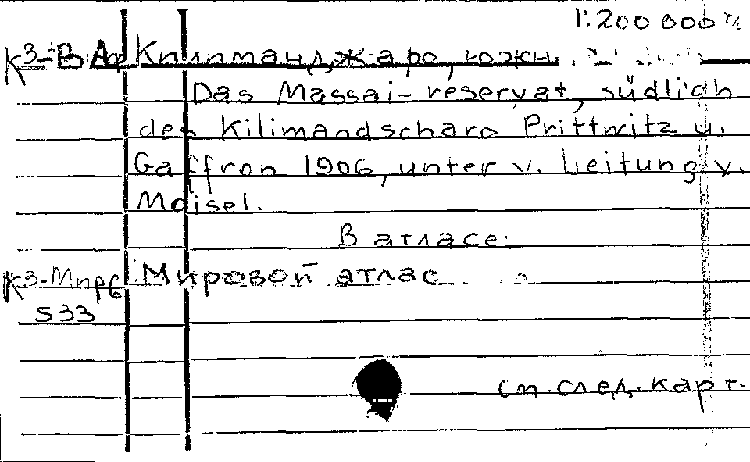 1:200 000
К3-В Аф Килиманджаро, южн.
Das Massai-reservat, südlich
des Kilimandscharo Prittwitz u.
Gaffron 1906, unter v. Leitung v.
Moisel.
В атласе:
К3-Мир Мировой атлас
533
см. след. карт.